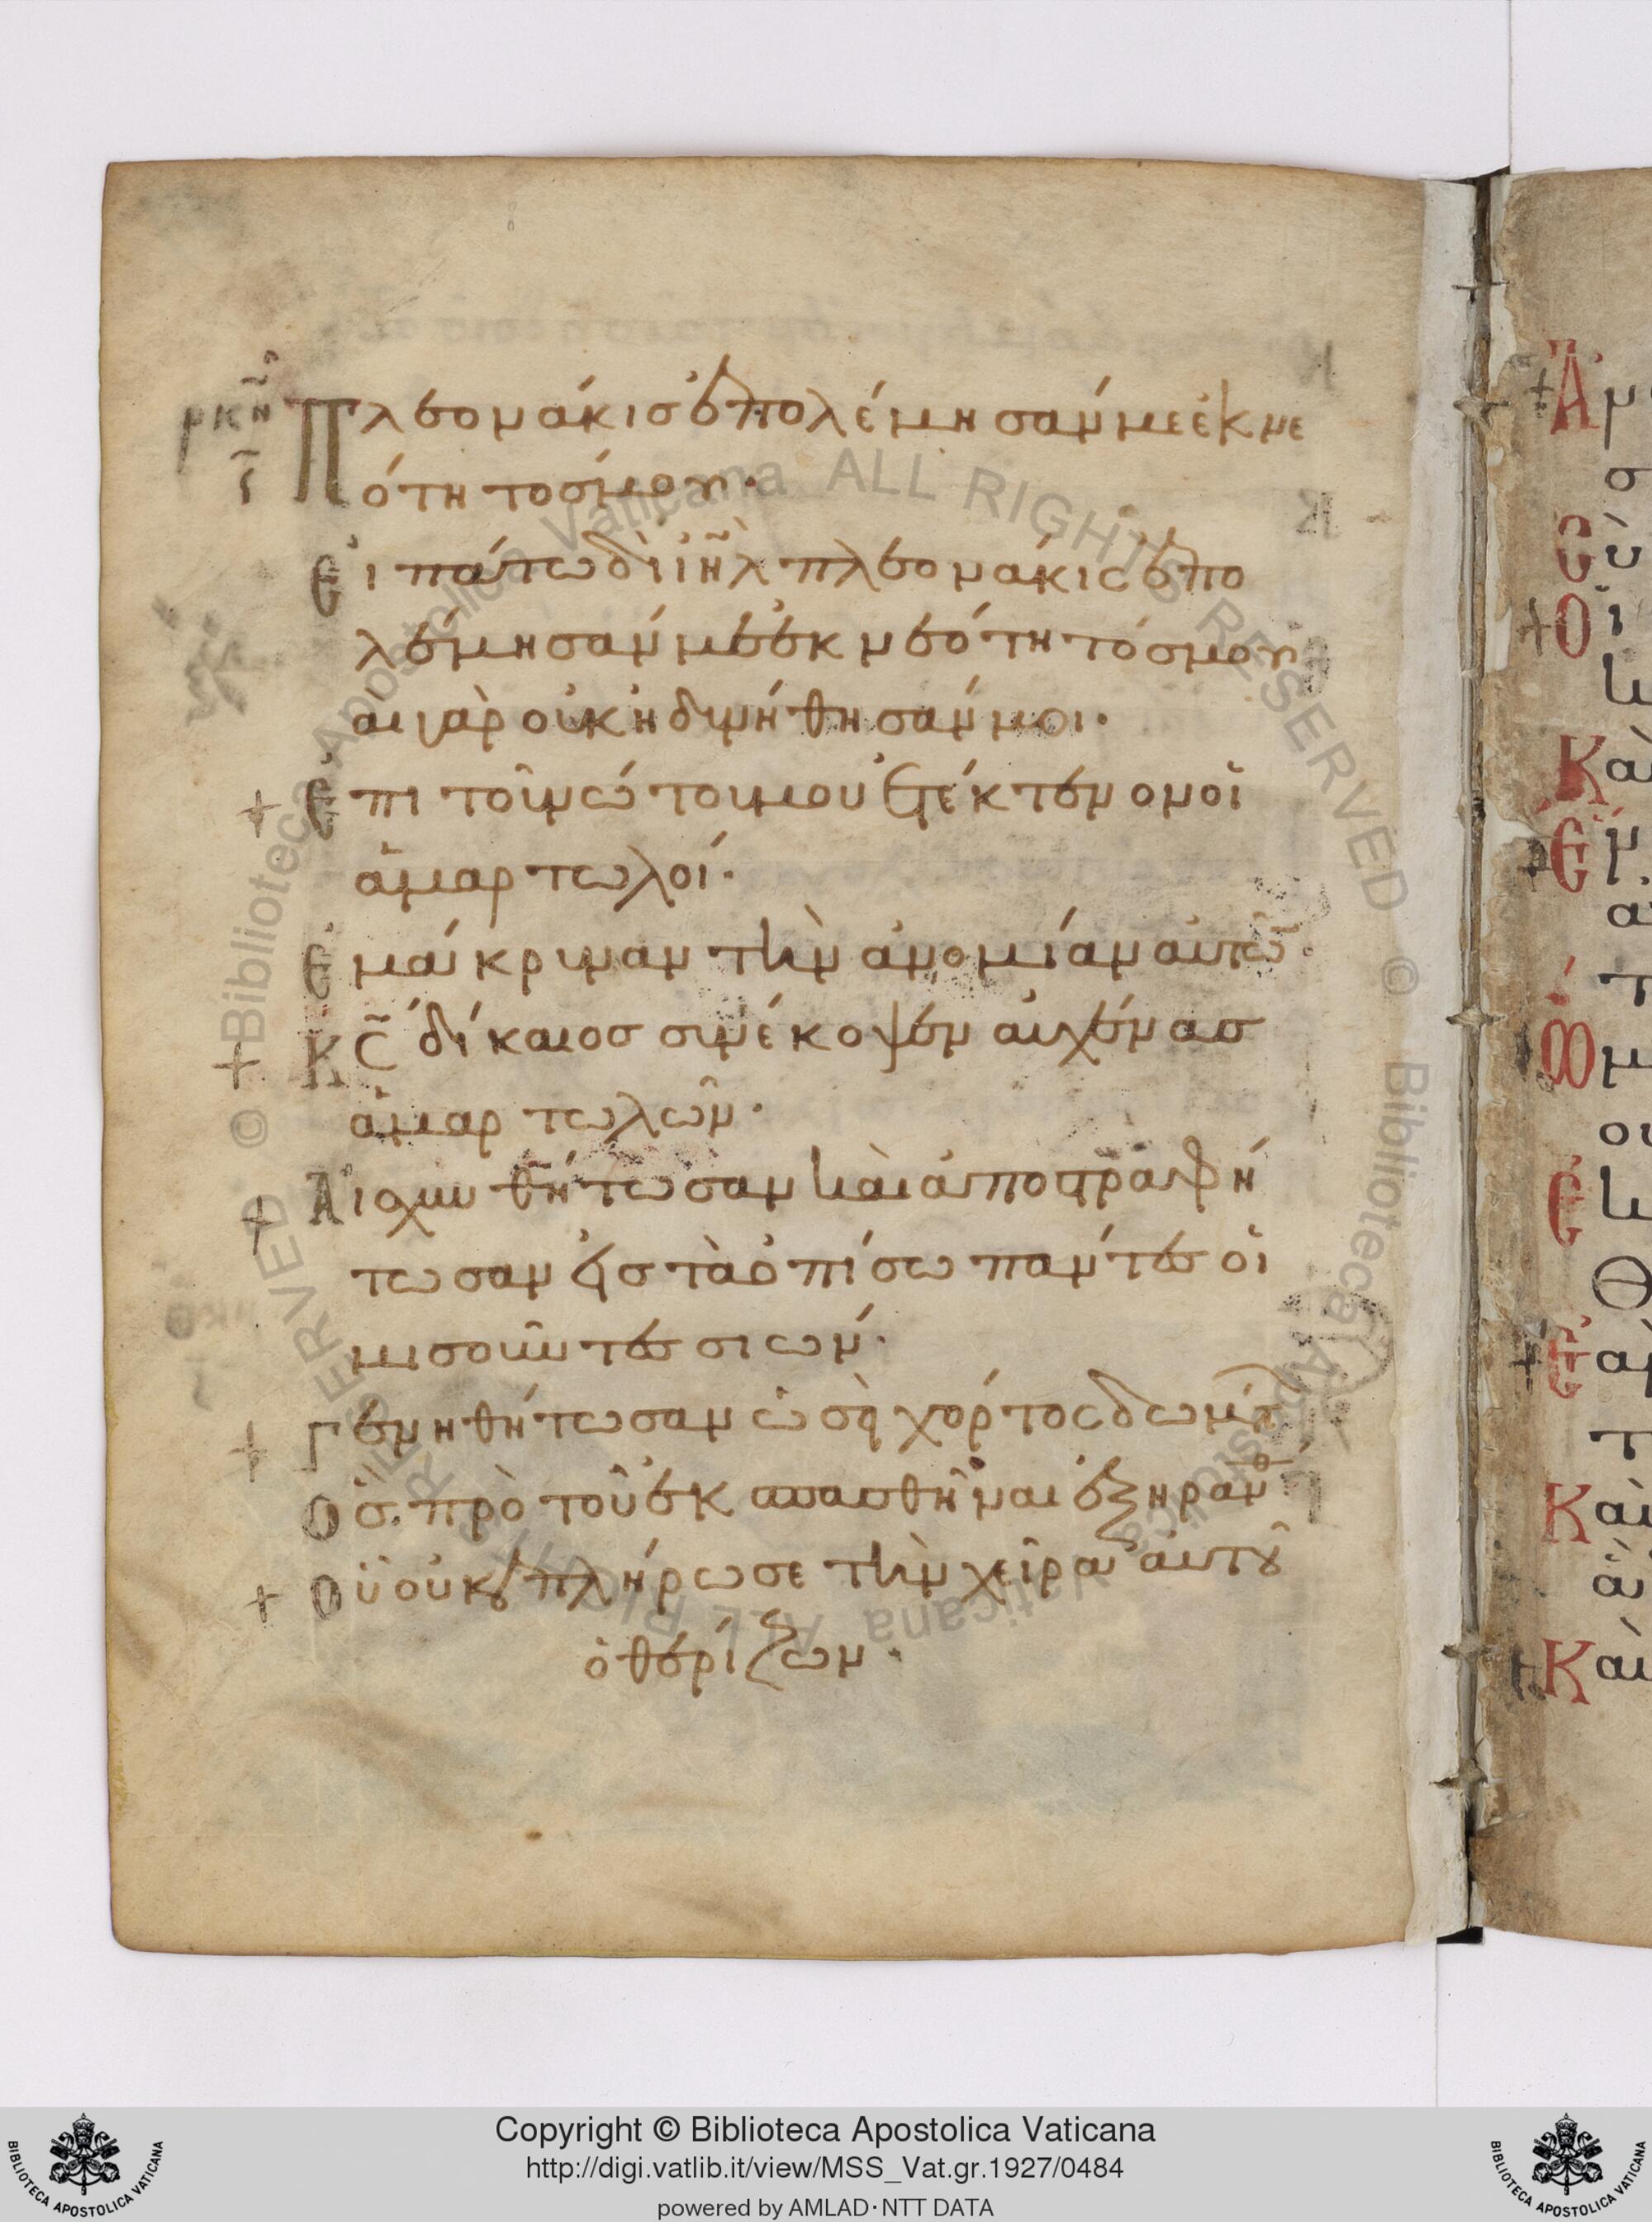 ρκη
Πλεονάκις ἐπολέμησάν με ἐκ νε
ότητός μου.
Εἰπάτω δὴ ιηλ πλεονάκις ἐπο
λέμησάν με ἐκ νεότητός μου
αι γὰρ οὐκ ηδυνήθησάν μοι.
+ Επι τοῦ νώτου μου ἐτέκτενον οἱ
ἁμαρτωλοί.
Εμάκρυναν τὴν ἀνομίαν αὐτῶ.
+ Κς δίκαιος συνέκοψεν αυχένας
ἁμαρτωλῶν.
+ Αἰσχυνθήτωσαν καὶ ἀποστραφή
τωσαν εἰς τὰ ὀπίσω πάντες οἱ
μισοῦντες σιών.
+ Γενηθήτωσαν ὡσεὶ χόρτος δωμάτ
Ος πρὸ τοῦ ἐκσπασθῆναι ἐξηράνθ
+ Οὗ οὐκ ἐπλήρωσε τὴν χεῖρα αὐτοῦ
ὁ θερίζων.
Copyright © Biblioteca Apostolica Vaticana
http://digi.vatlib.it/view/MSS_Vat.gr.1927/0484
powered by AMLAD·NTT DATA
BIBLIOTECA APOSTOLICA VATICANA
BIBLIOTECA APOSTOLICA VATICANA
© Biblioteca Apostolica Vaticana ALL RIGHTS RESERVED
© Biblioteca Apostolica Vaticana ALL RIGHTS RESERVED